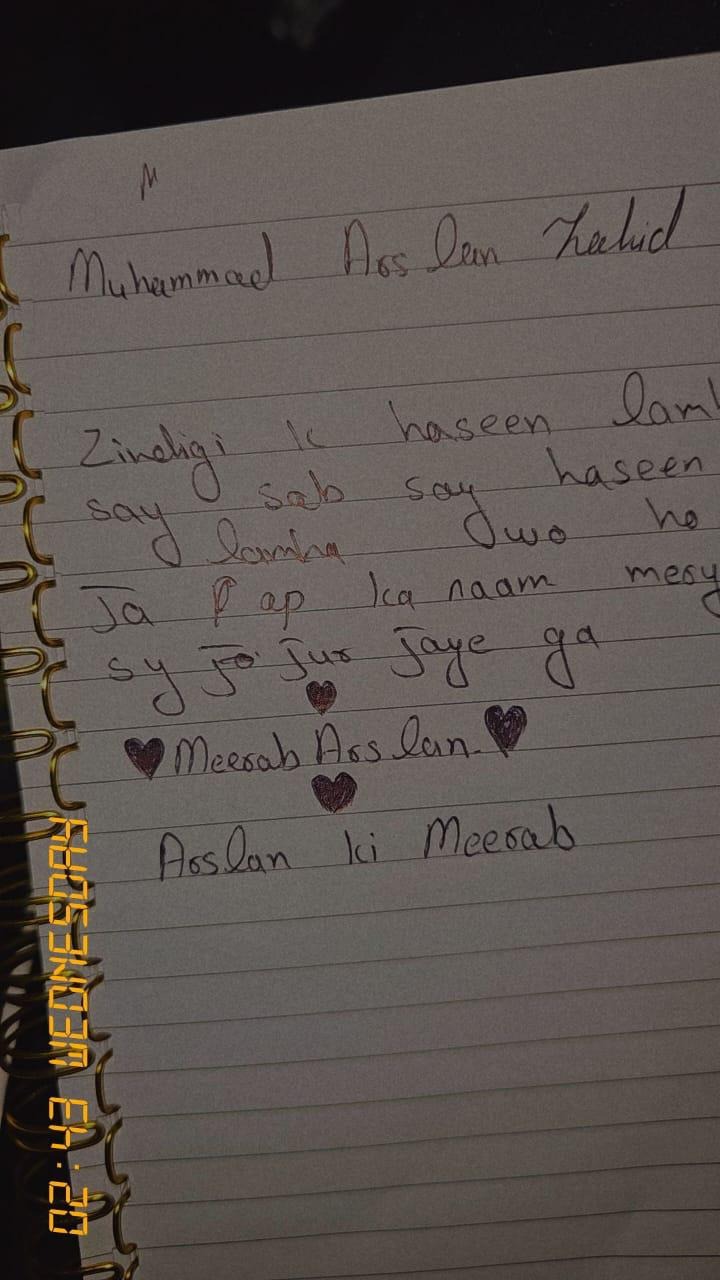 M
Muhammad Arslan Zahid
Zindigi k haseen laml
say sab say haseen
lamha wo ho
Ja ap ka naam mery
sy jo jur jaye ga
Meerab Arslan
Arslan ki Meerab
02:43 WEDNESDAY